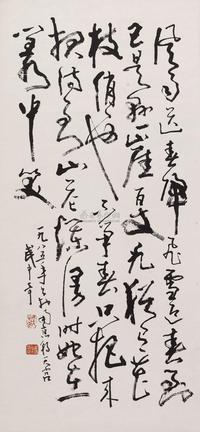 風雨送春歸飛雪迎春到
已是悬崖百丈冰犹有花
枝俏也不争春只把春来
报待到山花烂漫时她在
叢中笑
一九八五年